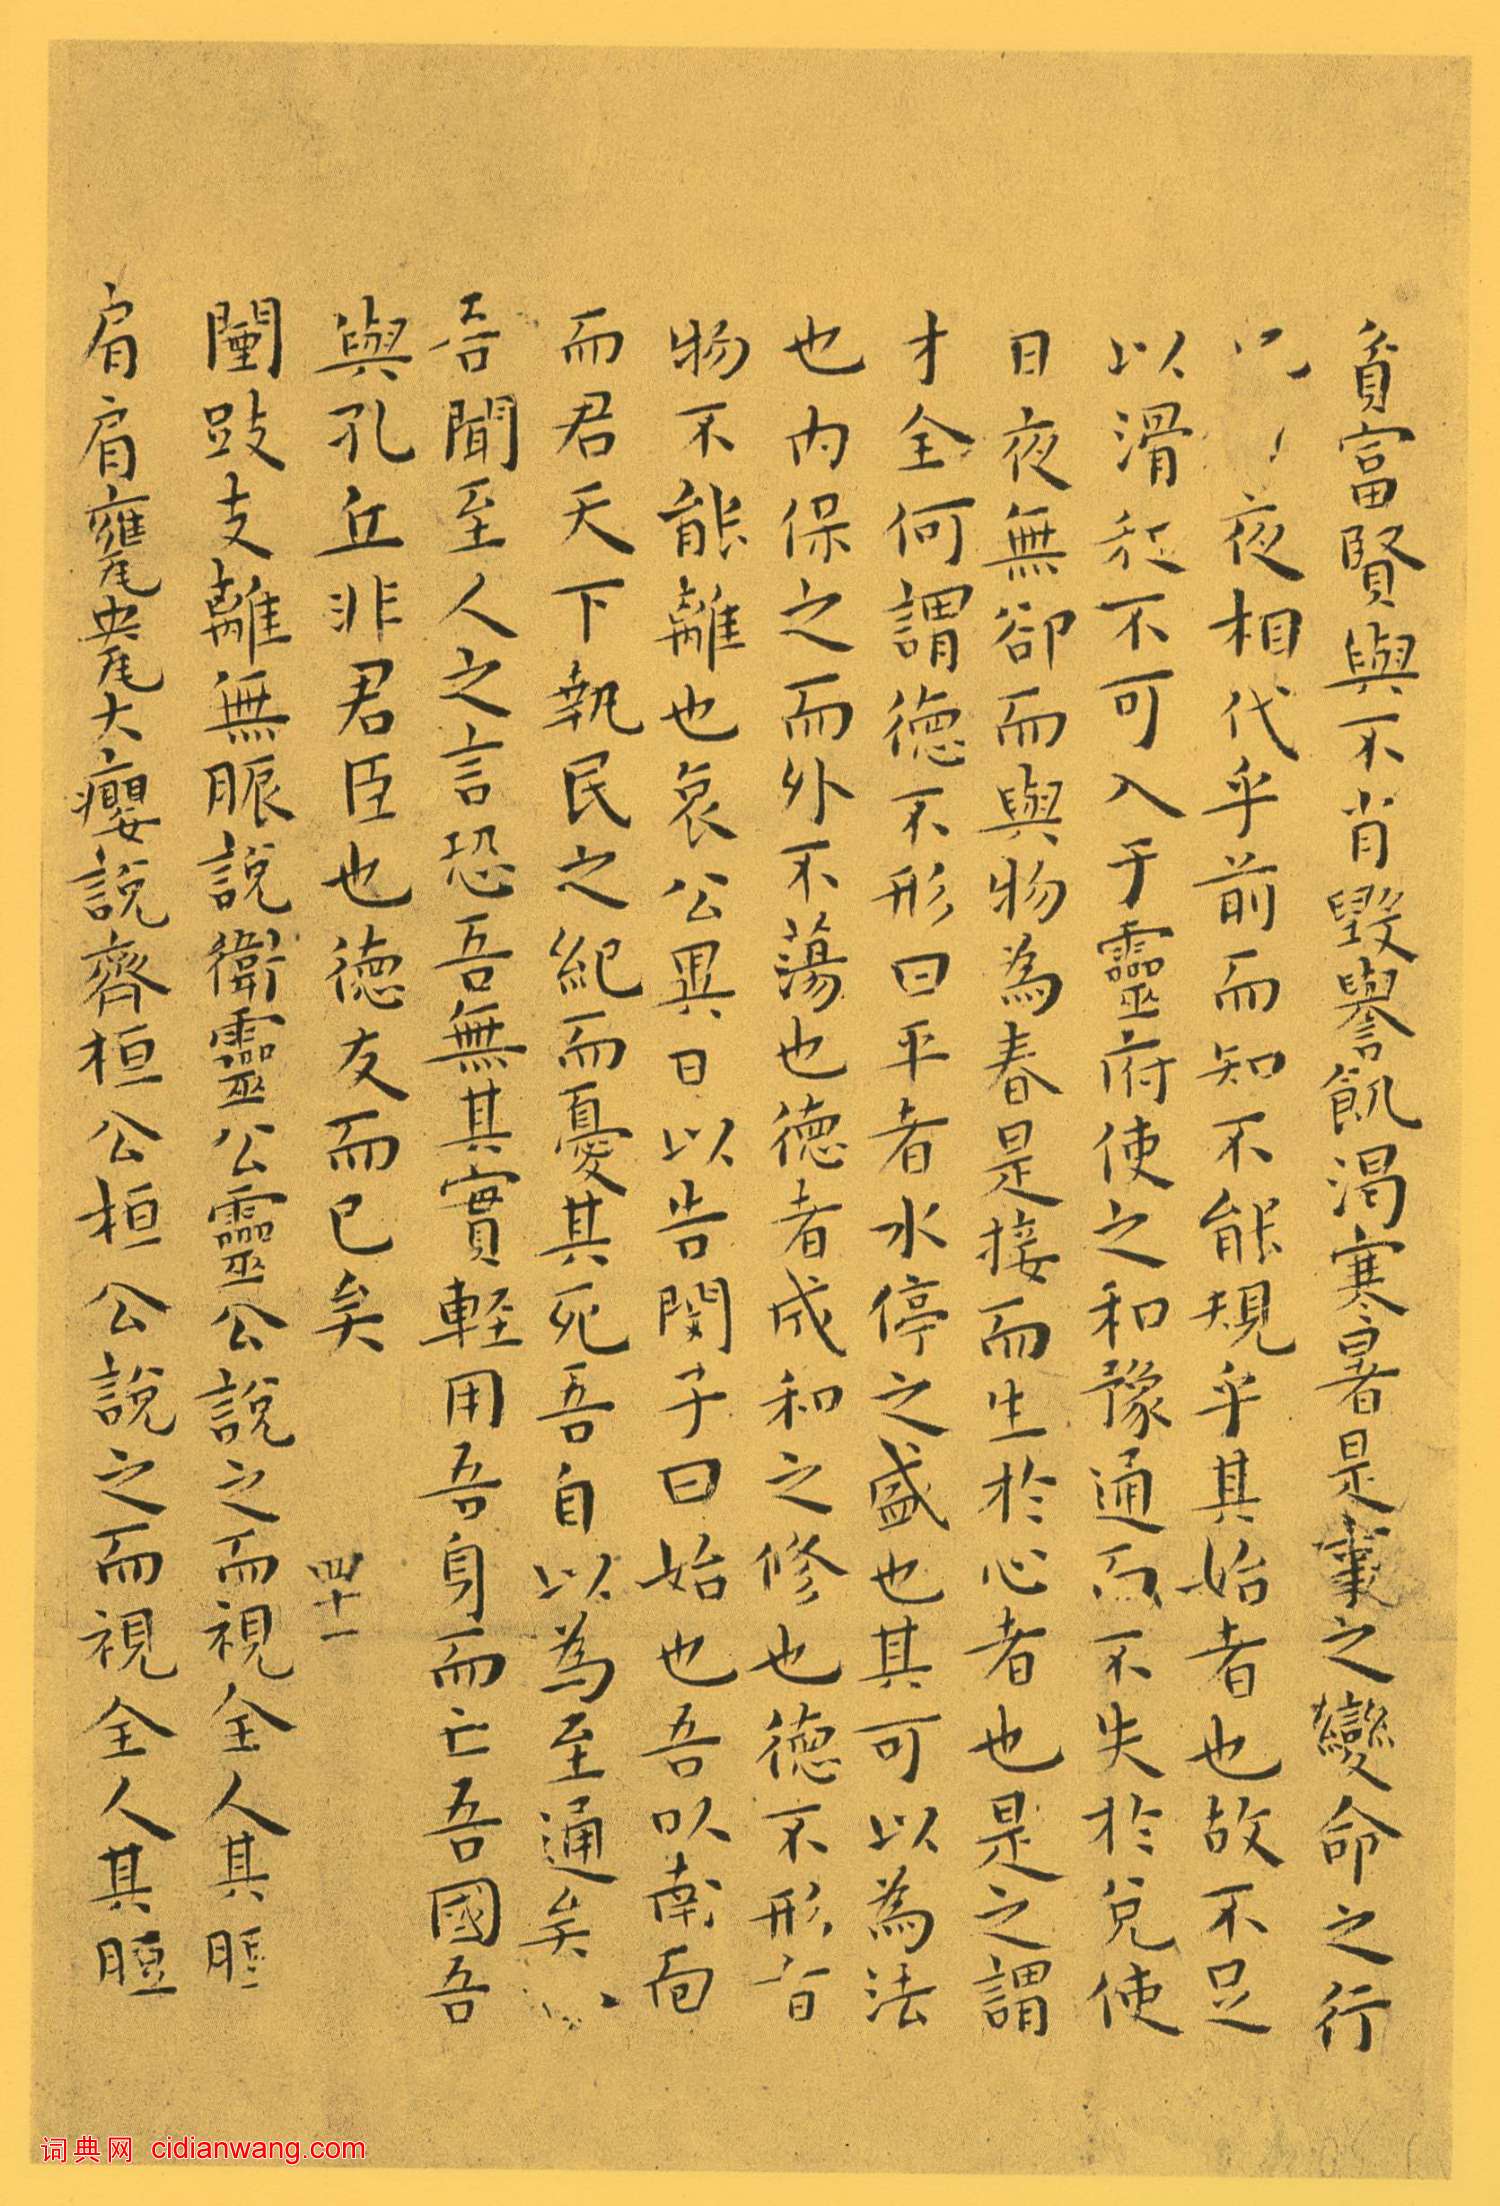 貧富賢與不肖毀譽飢渴寒暑是事之變命之行
夜相代乎前而知不能規乎其始者也故不足
以滑和不可入于靈府使之和豫通而不失於兌使
日夜無郤而與物為春是接而生於心者也是之謂
才全何謂德不形曰平者水停之盛也其可以為法
也內保之而外不蕩也德者成和之修也德不形者
物不能離也哀公異日以告閔子曰始也吾以南面
而君天下執民之紀而憂其死吾自以為至通矣
吾聞至人之言恐吾無其實輕用吾身而亡吾國吾
與孔丘非君臣也德友而已矣
四十一
闉跂支離無脤說衛靈公靈公說之而視全人其脰
肩肩甕㼜大癭說齊桓公桓公說之而視全人其脰
词典网 cidianwang.com